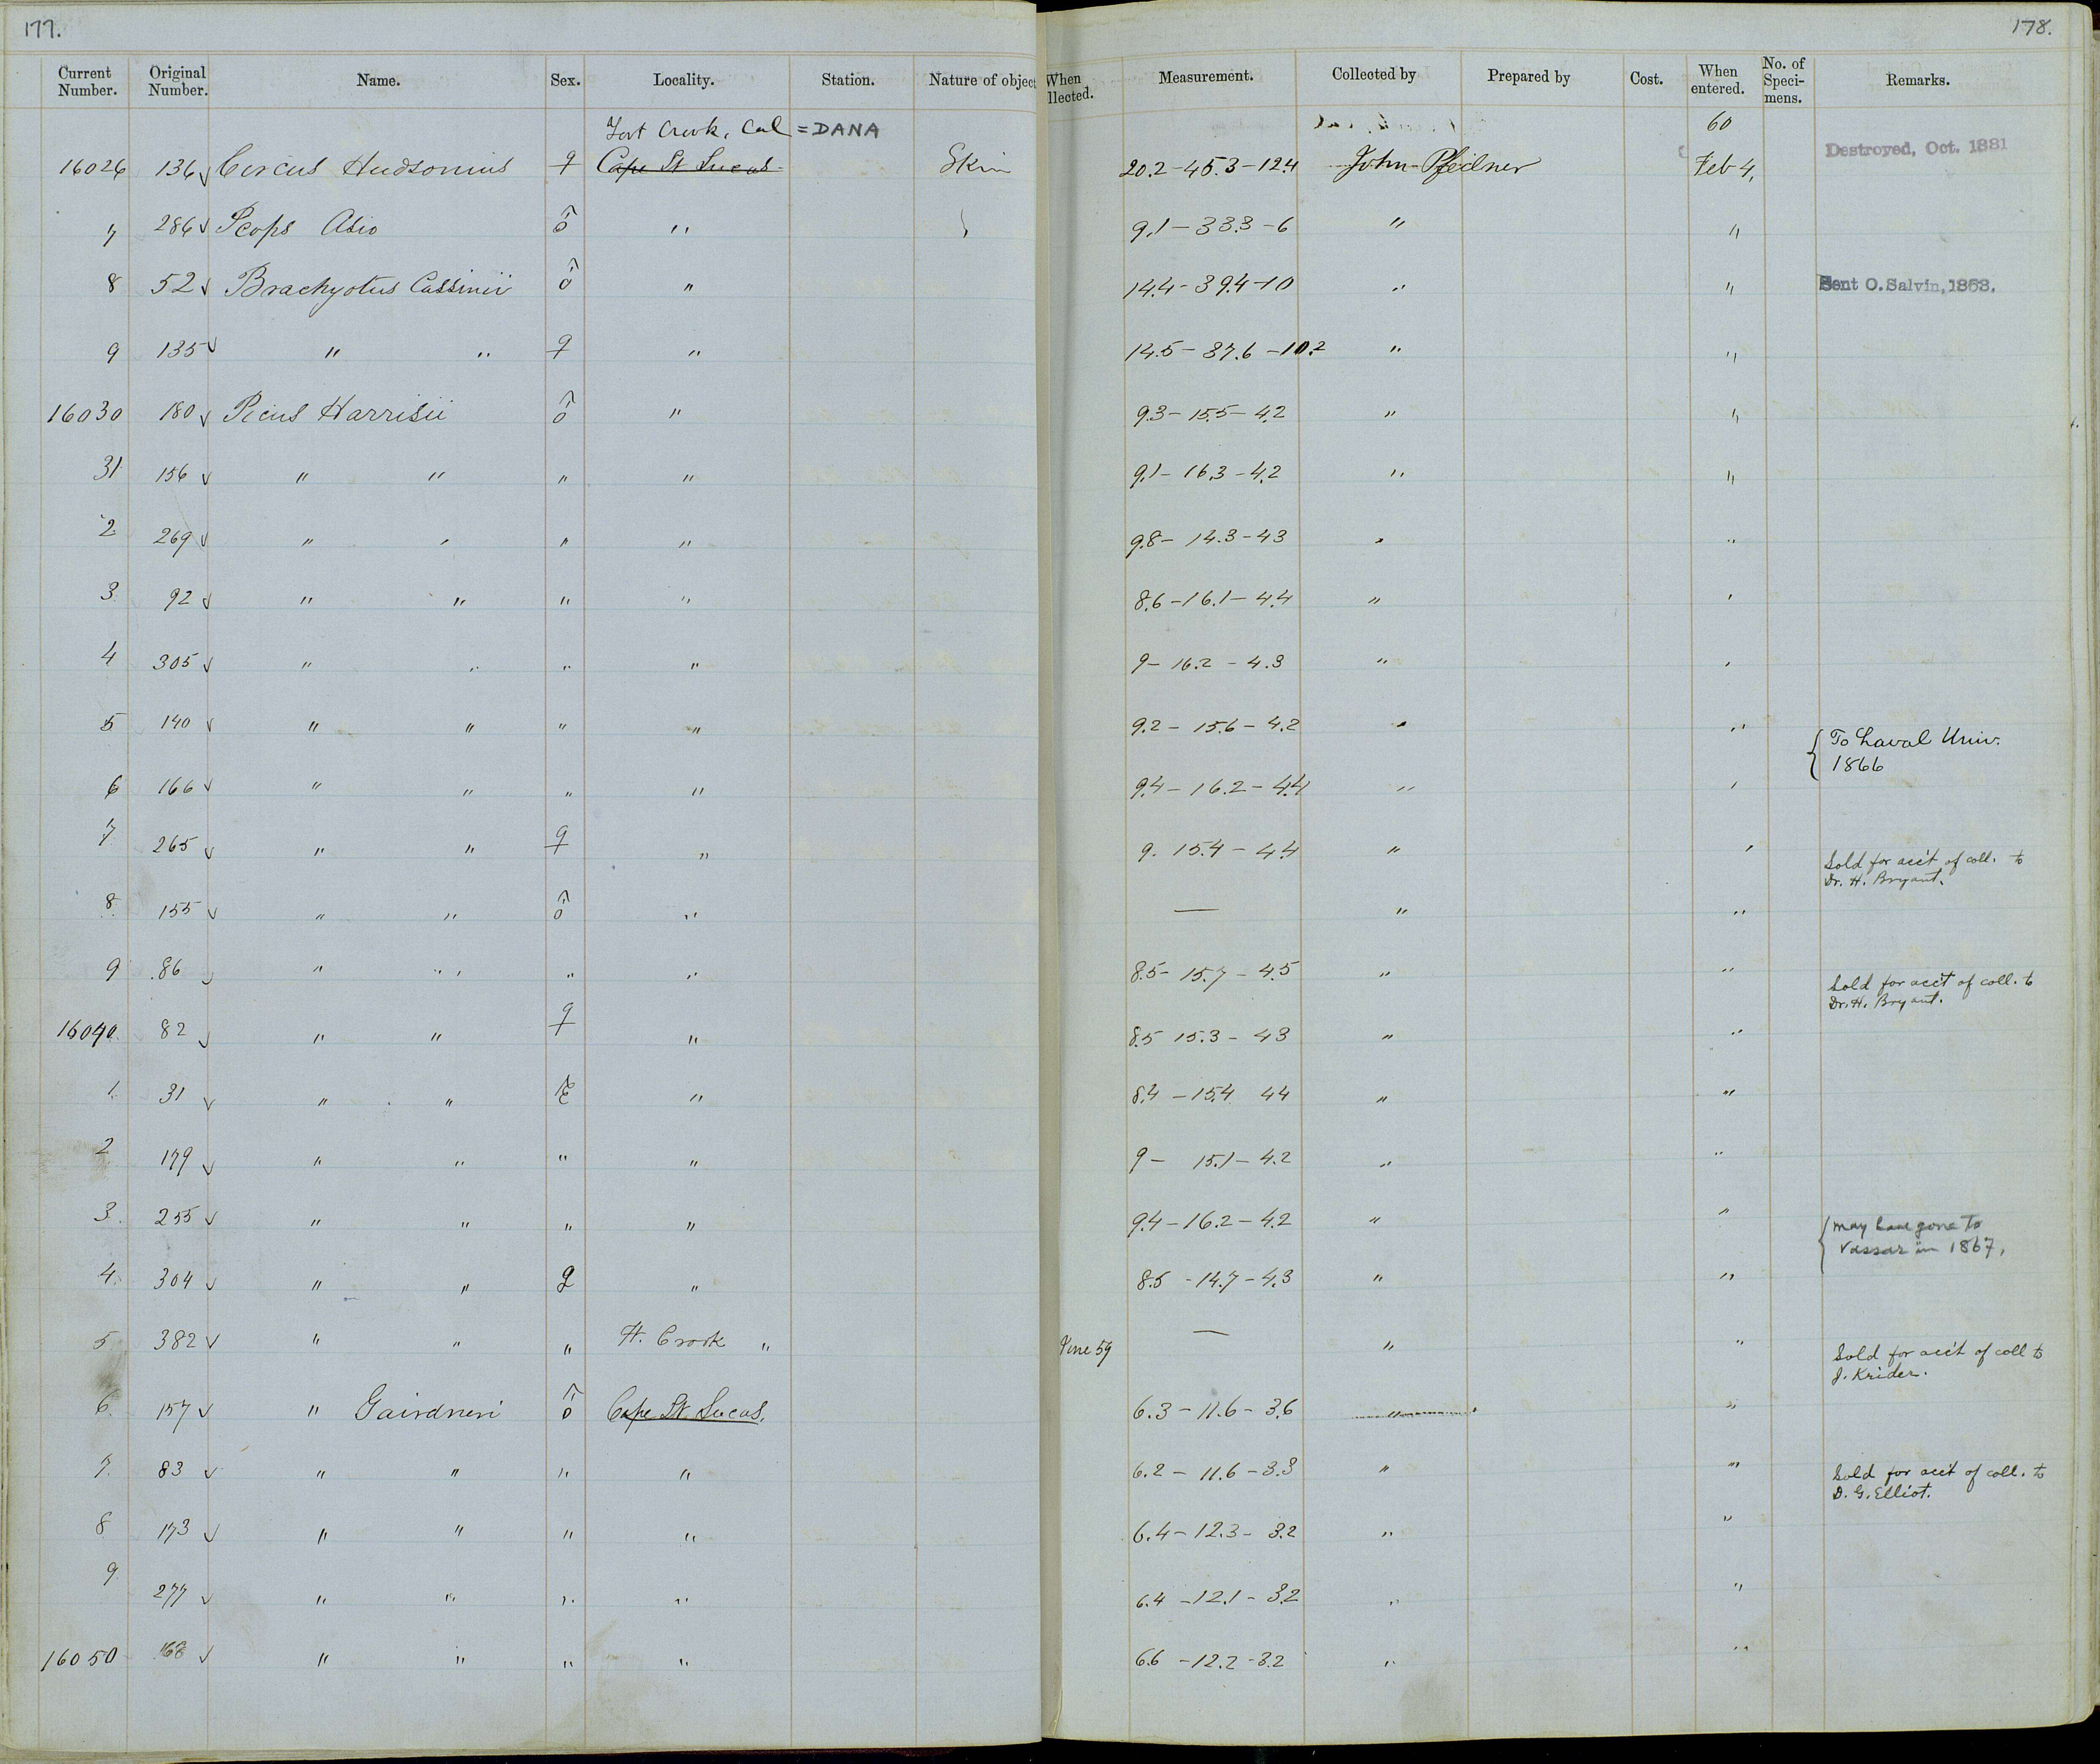 177.
178.
Current Number. Original Number. Name. Sex. Locality. Station. Nature of object When llected. Measurement. Collected by Prepared by Cost. When entered. No. of Speci-mens. Remarks.
Fort Crook, Cal = DANA 60
16026 136 ✓ Circus Hudsonius ♀ Cape St Lucas Skin 20.2-45.3-12.4 John Feilner Feb 4, Destroyed, Oct. 1881
7 286 ✓ Scops Asio ♂ " 9.1-33.3-6 " "
8 52 ✓ Brachyotus Cassinii ♂ " 14.4-39.4-10 " " Sent O. Salvin, 1863.
9 135 ✓ " " ♀ " 14.5-37.6-10.2 " "
16030 180 ✓ Picus Harrisii ♂ " 9.3-15.5-4.2 " "
31 156 ✓ " " " " 9.1-16.3-4.2 " "
2 269 ✓ " " " " 9.8-14.3-43 " "
3 92 ✓ " " " " 8.6-16.1-4.4 " "
4 305 ✓ " " " " 9-16.2-4.3 " "
5 140 ✓ " " " " 9.2-15.6-4.2 " "
{ To Laval Univ.
1866
6 166 ✓ " " " " 9.4-16.2-4.4 " "
7 265 ✓ " " ♀ " 9. 15.4-4.4 " " Sold for acc't of coll. to
Dr. H. Bryant.
8 155 ✓ " " ♂ " — " "
9 86 ✓ " " " " 8.5-15.7-4.5 " " Sold for acc't of coll. to
Dr. H. Bryant.
16040 82 ✓ " " ♀ " 8.5 15.3-43 " "
1 31 ✓ " " " 8.4-15.4 44 " "
2 179 ✓ " " " " 9-15.1-4.2 " "
3 255 ✓ " " " " 9.4-16.2-4.2 " " { may have gone to
Vassar in 1867.
4 304 ✓ " " ♀ " 8.5-14.7-4.3 " "
5 382 ✓ " " " Ft. Crook " June 59 — " " Sold for acc't of coll to
J. Krider.
6 157 ✓ " Gairdneri ♂ Cape St Lucas. 6.3-11.6-3.6 " "
7 83 ✓ " " " " 6.2-11.6-3.3 " " Sold for acc't of coll. to
D. G. Elliot.
8 173 ✓ " " " " 6.4-12.3-3.2 " "
9 277 ✓ " " " " 6.4-12.1-3.2 " "
16050 168 ✓ " " " " 6.6-12.2-3.2 " "